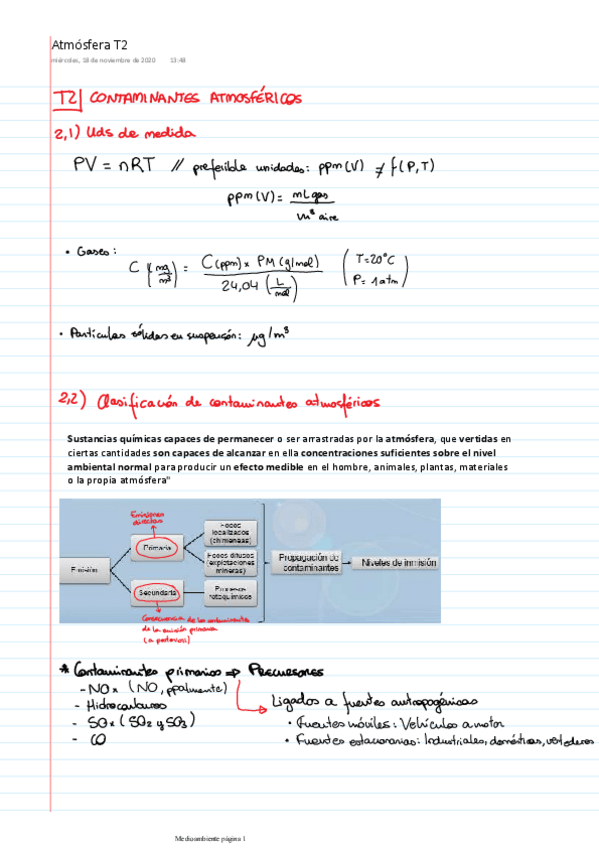 Atmósfera T2
miércoles, 18 de noviembre de 2020 13:48
T2| CONTAMINANTES ATMOSFÉRICOS
2,1) Uds de medida
PV = nRT // preferible unidades: ppm (V) ≠ f(P,T)
ppm (V) = mL gas / m³ aire
• Gases: C (mg/m³) = C(ppm) × PM (g/mol) / 24,04 (L/mol) (T=20°C P=1atm)
• Partículas sólidas en suspensión: µg/m³
2,2) Clasificación de contaminantes atmosféricos
Sustancias químicas capaces de permanecer o ser arrastradas por la atmósfera, que vertidas en
ciertas cantidades son capaces de alcanzar en ella concentraciones suficientes sobre el nivel
ambiental normal para producir un efecto medible en el hombre, animales, plantas, materiales
o la propia atmósfera"
Emisiones
directas
Emisión
Primaria
Focos
localizados
(chimeneas)
Focos difusos
(explotaciones
mineras)
Secundaria
Procesos
fotoquímicos
Propagación de
contaminantes
Niveles de inmisión
Consecuencia de los contaminantes
de la emisión primaria
(a posteriori)
* Contaminantes primarios ⇒ PRECURSORES
- NOx (NO, ppalmente)
- Hidrocarburos
- SOx (SO2 y SO3)
- CO
Ligados a fuentes antropogénicas
• Fuentes móviles: Vehículos a motor
• Fuentes estacionarias: Industriales, domésticas, vertederos
Medioambiente página 1